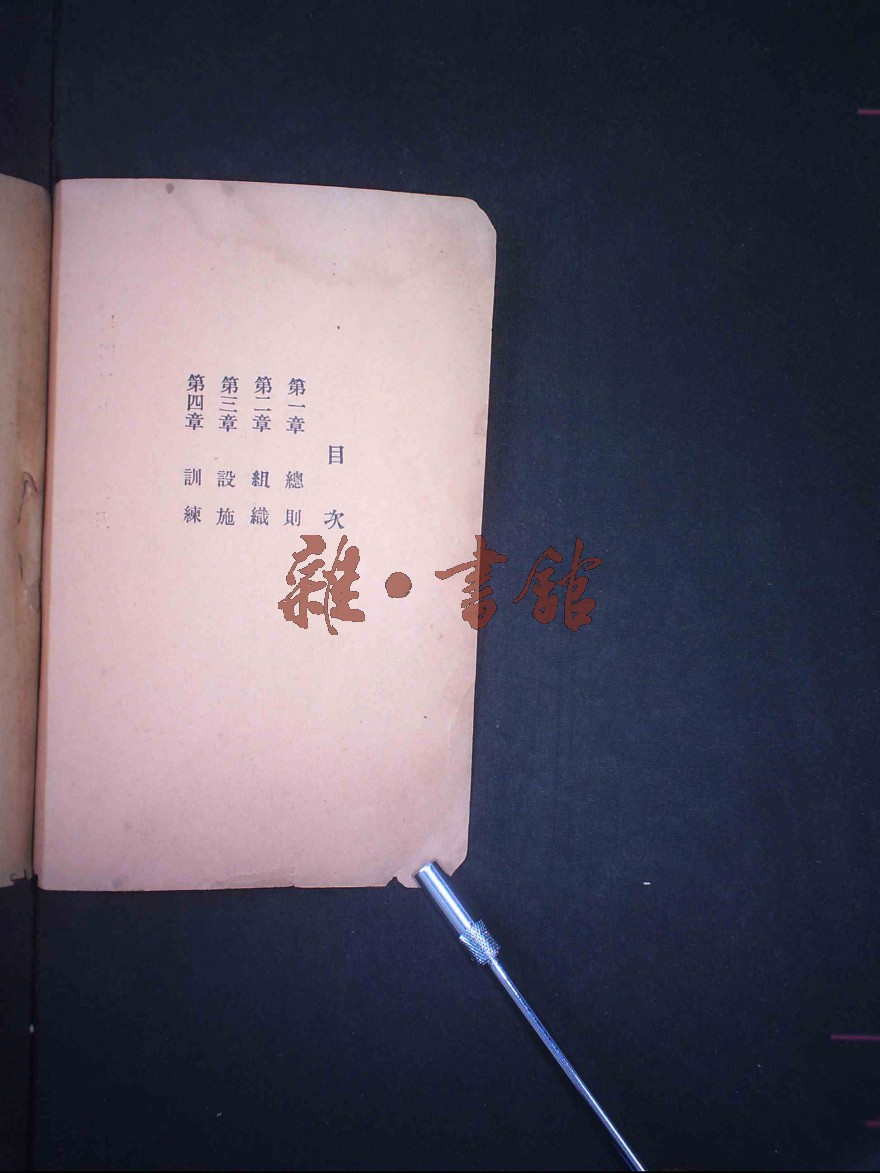 目次
第一章 總則
第二章 組織
第三章 設施
第四章 訓練
雜·書館